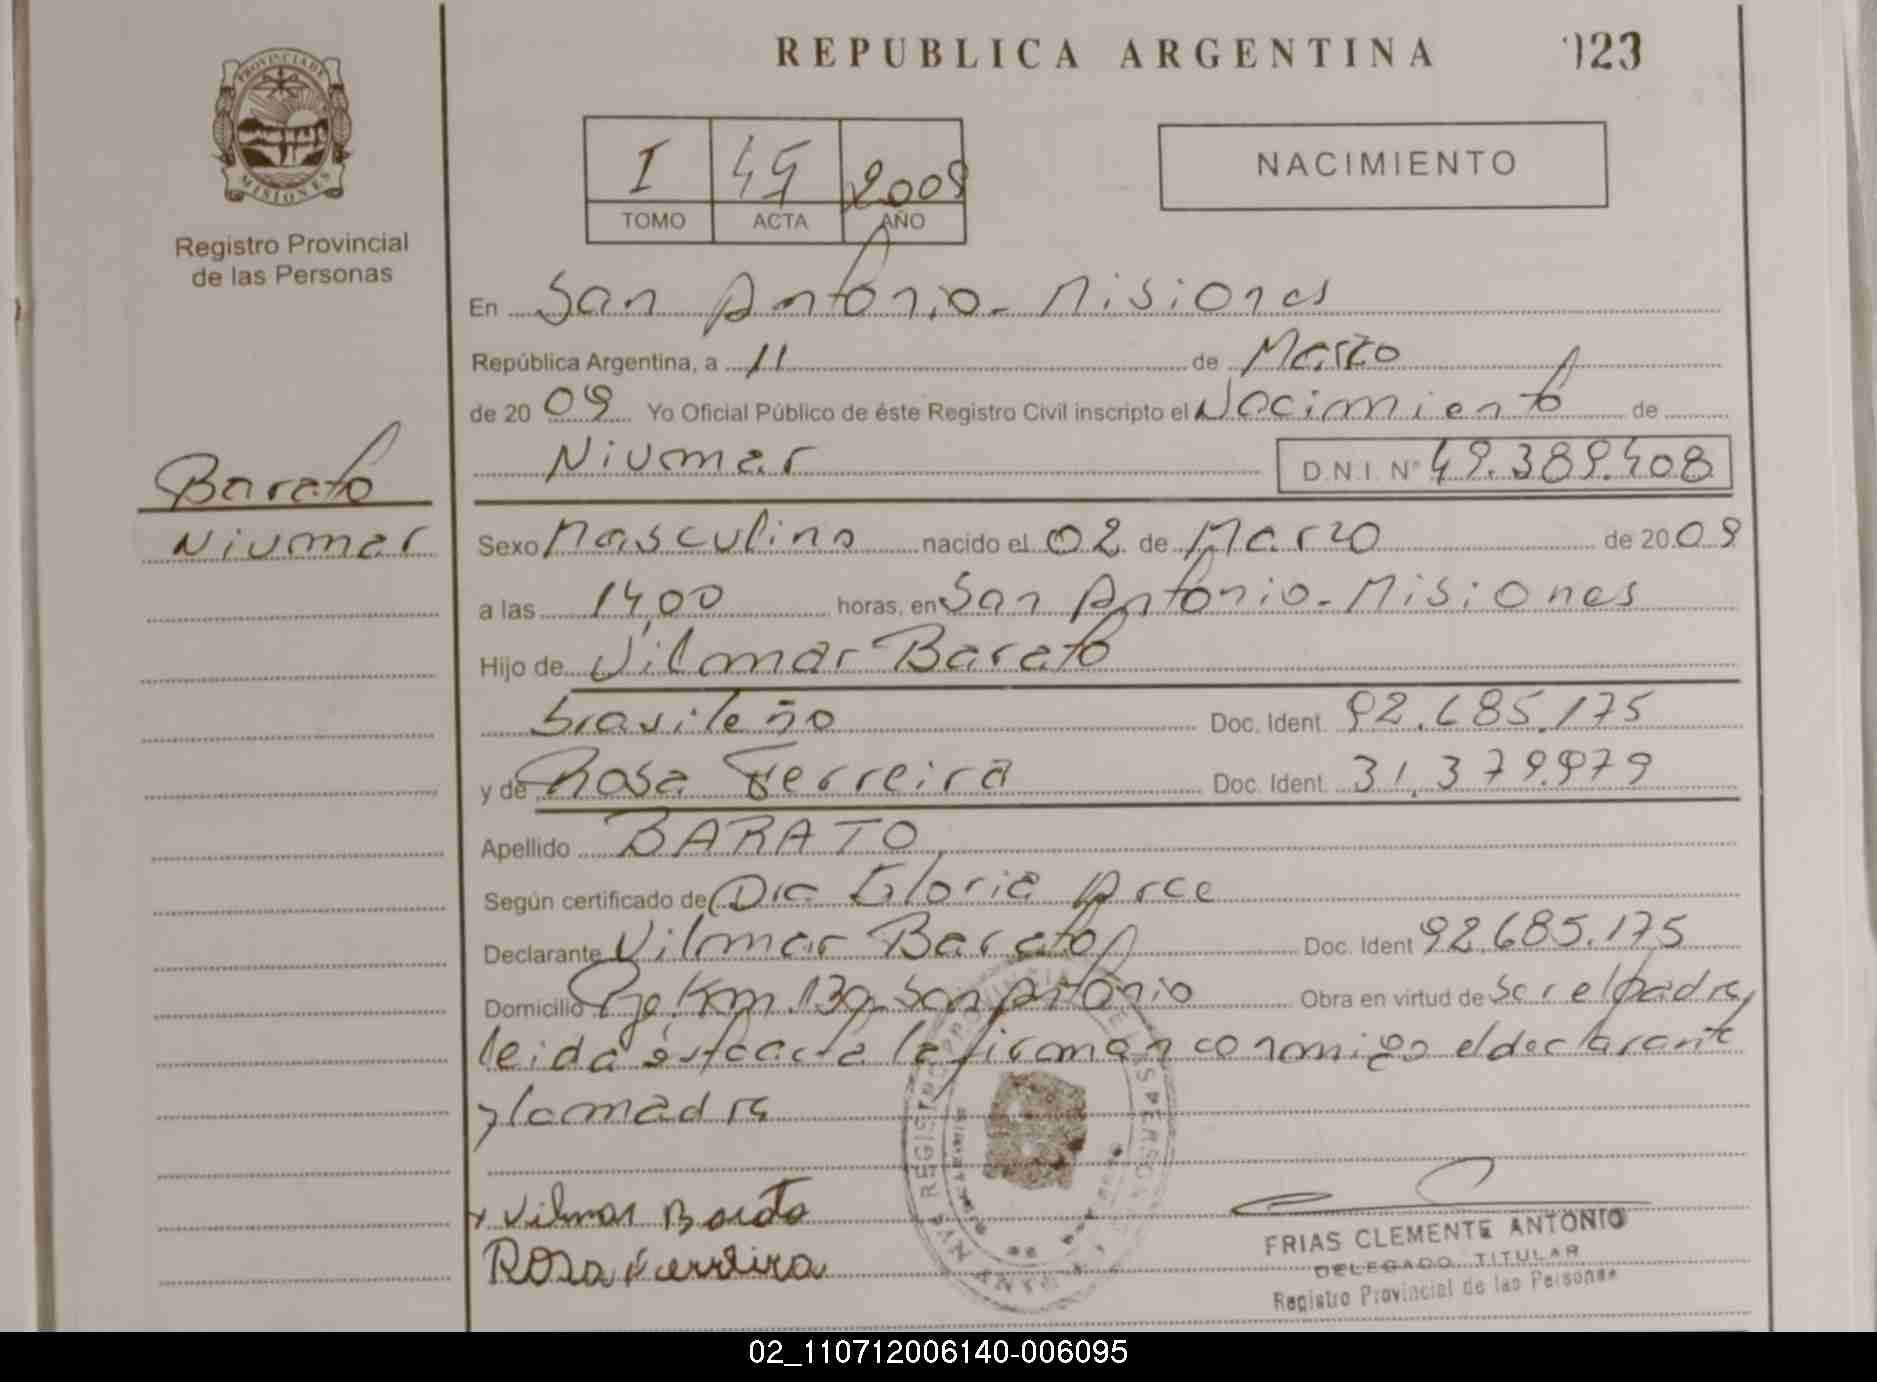 REPUBLICA ARGENTINA
023
PROVINCIA DE
MISIONES
Registro Provincial
de las Personas
I
2009
TOMO
ACTA
AÑO
NACIMIENTO
En San Antonio - Misiones
República Argentina, a 11 de Marzo
de 2009 Yo Oficial Público de éste Registro Civil inscripto el Nacimiento de
Niumar D.N.I. N° 49.389.408
Barato
Niumar
Sexo Masculino nacido el 02 de Marzo de 2009
a las 14,00 horas, en San Antonio - Misiones
Hijo de Vilmar Barato
brasileño Doc. Ident. 92.685.175
y de Rosa Ferreira Doc. Ident. 31.379.979
Apellido BARATO
Según certificado de Dra Gloria Arce
Declarante Vilmar Barato Doc. Ident 92.685.175
Domicilio Pje. Km. 130 San Antonio Obra en virtud de ser el padre,
leida ésta acta la firman conmigo el declarante
y la madre
x Vilmar Barato
Rosa Ferreira
FRIAS CLEMENTE ANTONIO
DELEGADO TITULAR
Registro Provincial de las Personas
02_110712006140-006095